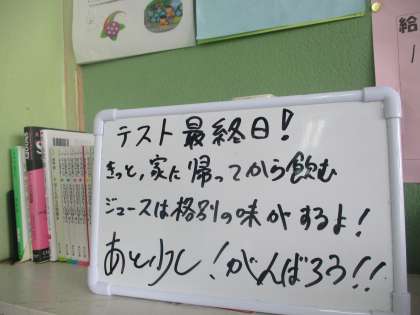 テスト最終日!
きっと,家に帰ってから飲む
ジュースは格別の味がするよ!
あと少し!がんばろう!!
給